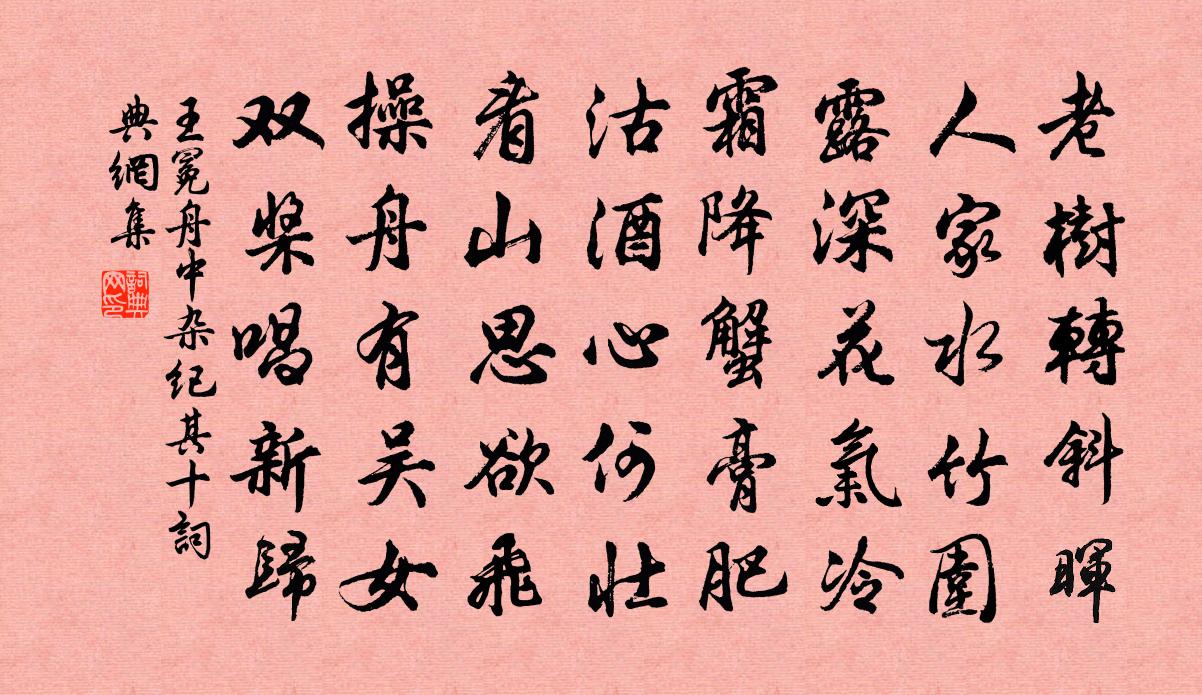 老樹轉斜暉
人家水竹圍
露深花氣冷
霜降蟹膏肥
沽酒心何壯
看山思欲飛
操舟有吴女
双桨唱新歸
王冕舟中杂纪其十詞
典網集
詞典网印